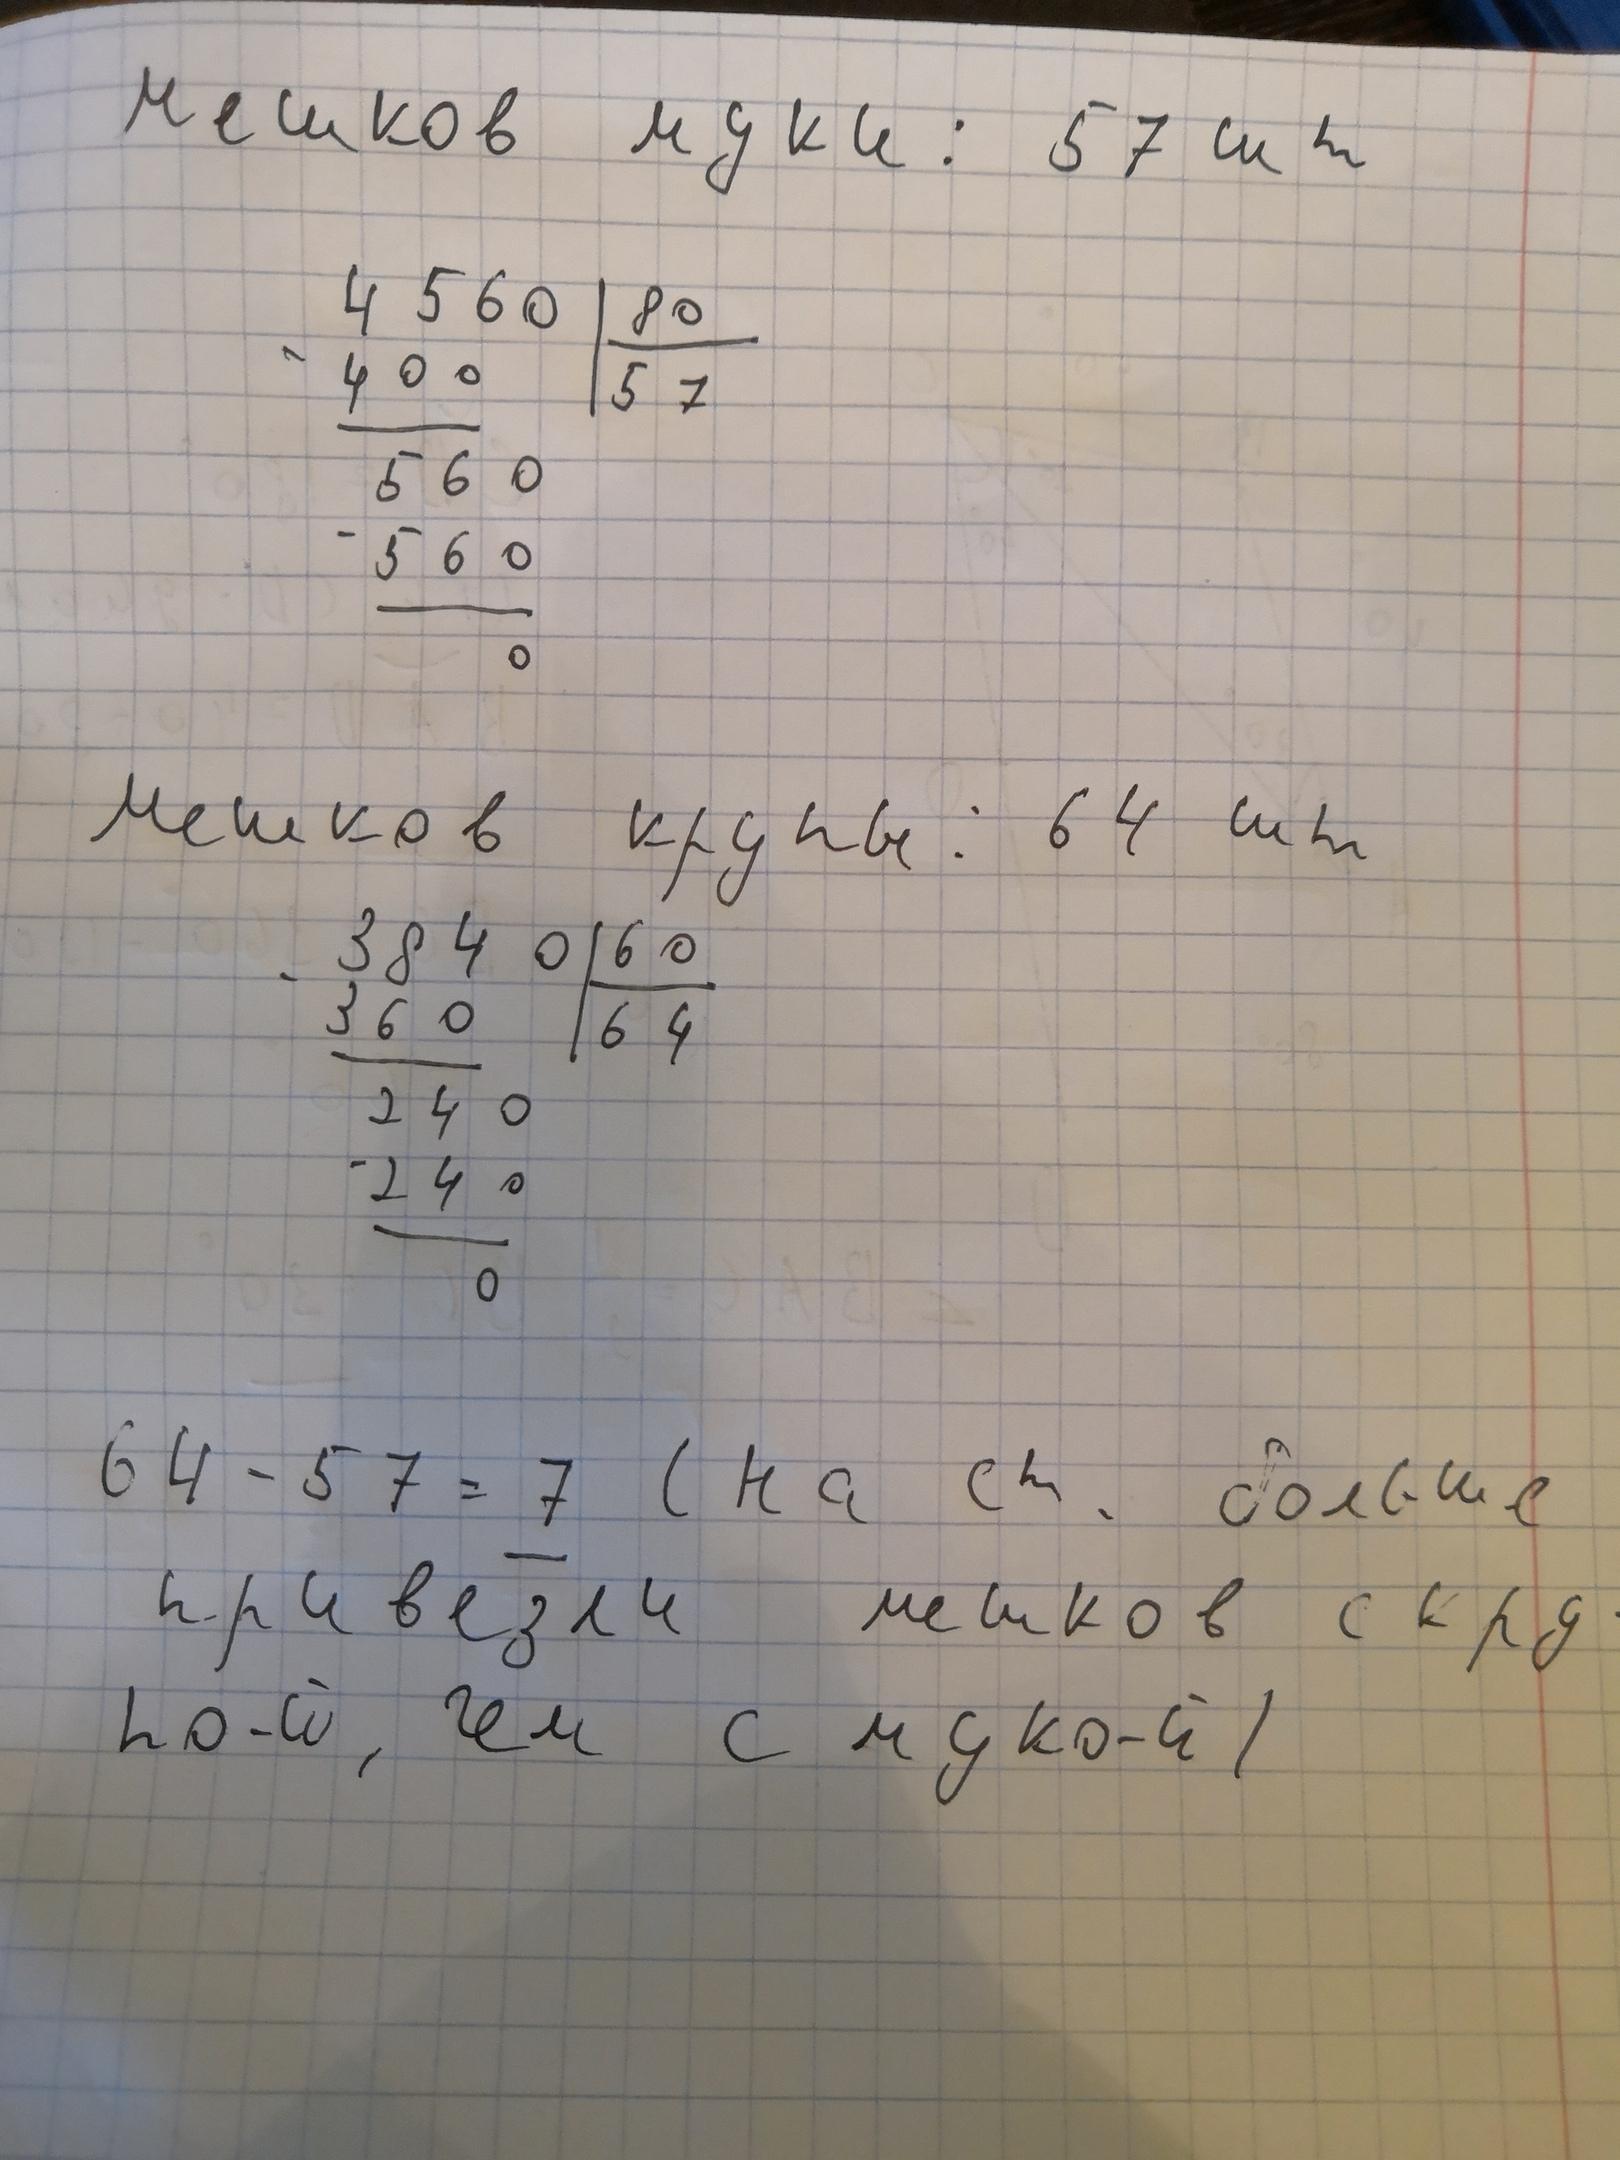 Мешков муки: 57 шт
4560 | 80
- 400 | 57
560
- 560
0
Мешков крупы: 64 шт
- 3840 | 60
360 | 64
240
- 240
0
64 - 57 = 7 (на ст. больше
привезли мешков с кру-
по-й, чем с муко-й)